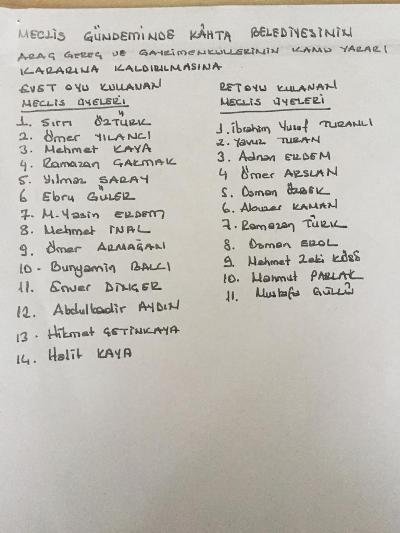 MECLİS GÜNDEMİNDE KÂHTA BELEDİYESİNİN
ARAÇ GEREÇ VE GAYRİMENKULLERİNİN KAMU YARARI
KARARINA KALDIRILMASINA
EVET OYU KULLANAN
MECLİS ÜYELERİ
1. Sırrı ÖZTÜRK
2. Ömer YILANCI
3. Mehmet KAYA
4. Ramazan ÇAKMAK
5. Yılmaz SARAY
6 Ebru GÜLER
7. M. Yasin ERDEM
8. Mehmet İNAL
9. Ömer ARMAĞAN
10- Bunyamin BALCI
11. Enver DİNÇER
12. Abdulkadir AYDIN
13. Hikmet ÇETİNKAYA
14. Halit KAYA
RET OYU KULANAN
MECLİS ÜYELERİ
1. İbrahim Yusuf TURANLI
2. Yavuz TURAN
3. Adnan ERDEM
4 Ömer ARSLAN
5. Osman ÖZBEK
6. Abuzer KAMAN
7. Ramazan TÜRK
8. Osman EROL
9. Mehmet Zeki KÖSE
10. Mahmut PARLAK
11. Mustafa GÜLLÜ